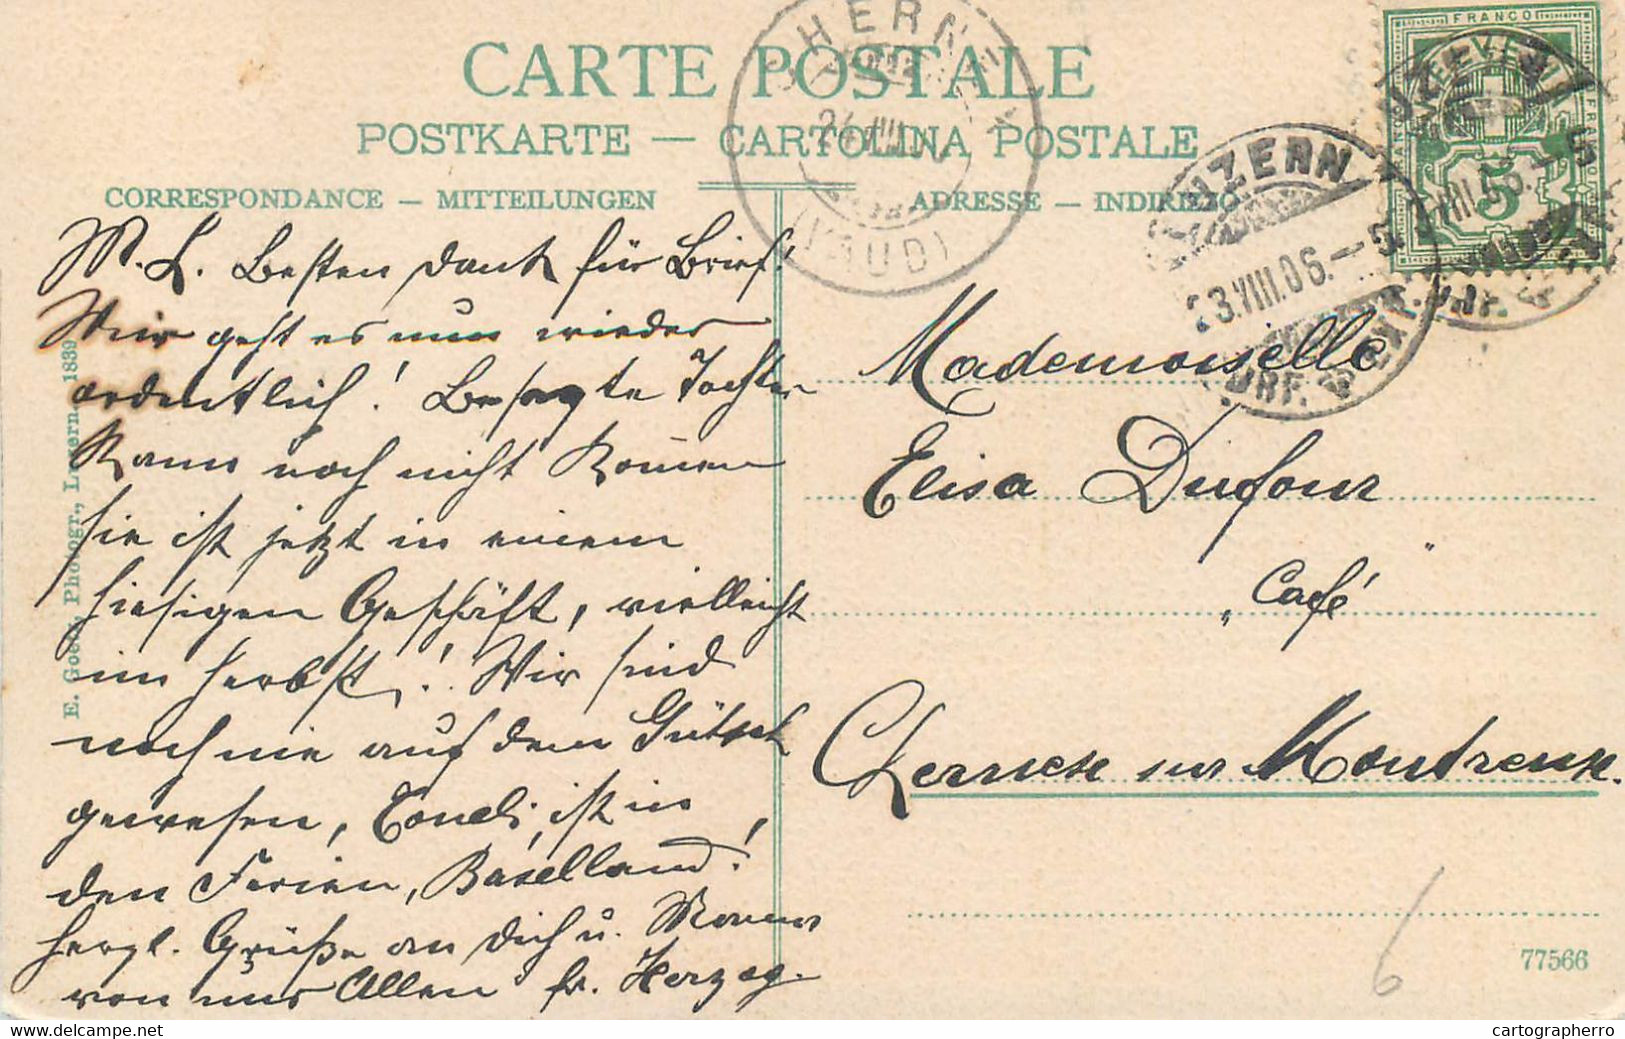 CARTE POSTALE
POSTKARTE — CARTOLINA POSTALE
CORRESPONDANCE — MITTEILUNGEN
ADRESSE — INDIRIZZO
M. L. Besten Dank für Brief!
Mir geht es nun wieder
ordentlich! Besagte Tochter
kann noch nicht kommen
sie ist jetzt in einem
hiesigen Geschäft, vielleicht
im Herbst! Wir sind
noch nie auf dem Gütsch
gewesen, ist in
den Ferien, Baselland!
herzl. Grüße an Dich u.
von uns Allen fr. Herzog.
Mademoiselle
Elisa Dufour
„Café"
Chernex sur Montreux.
E. Goetz, Photogr., Luzern. 1839
77566
6
FRANCO
5
LUZERN
23.VIII.06.–5
BRF. EXP.
CHERNEX
24 VIII 06
(VAUD)
delcampe.net
cartographerro